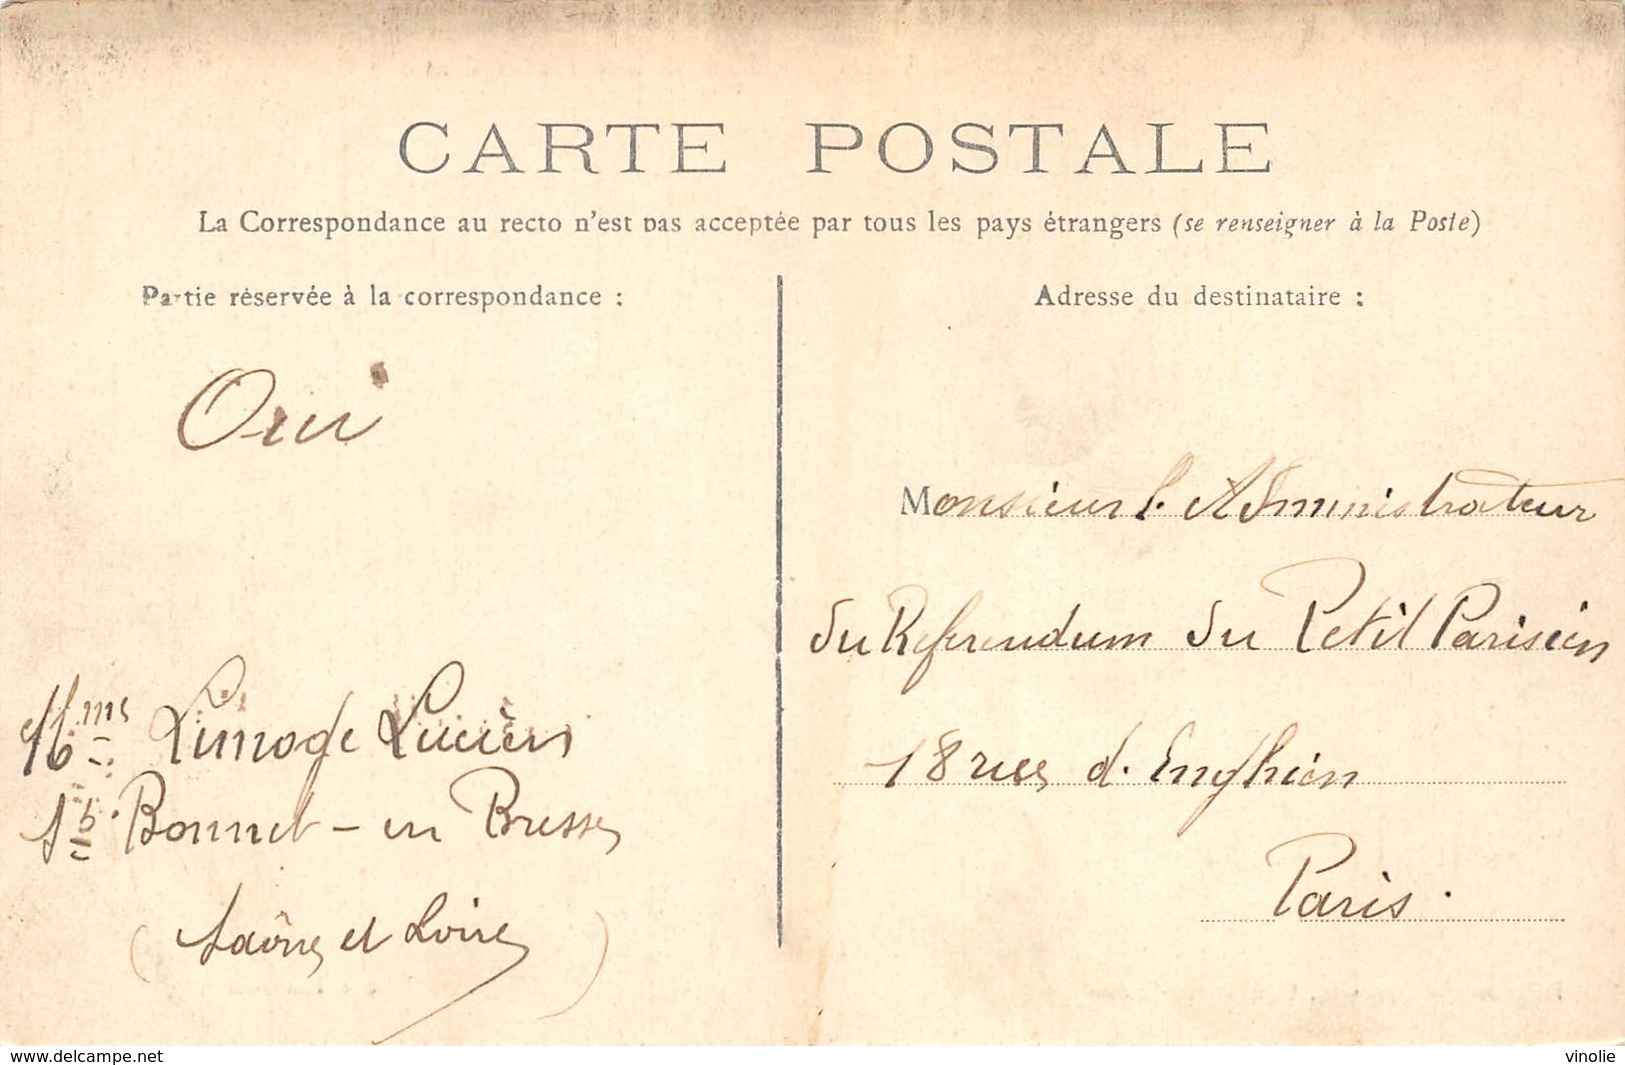 CARTE POSTALE
La Correspondance au recto n'est pas acceptée par tous les pays étrangers (se renseigner à la Poste)
Partie réservée à la correspondance :
Oui
Limoge Lucien
St Bonnet - en Bresse
(Saône et Loire)
Adresse du destinataire :
Monsieur l'Administrateur
du Referendum du Petit Parisien
18 rue d'Enghien
Paris.
www.delcampe.net
vinolie